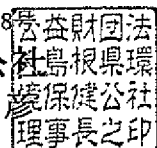 8号
公益財団法
人島根県環
境保健公社
理事長之印
公社
彦